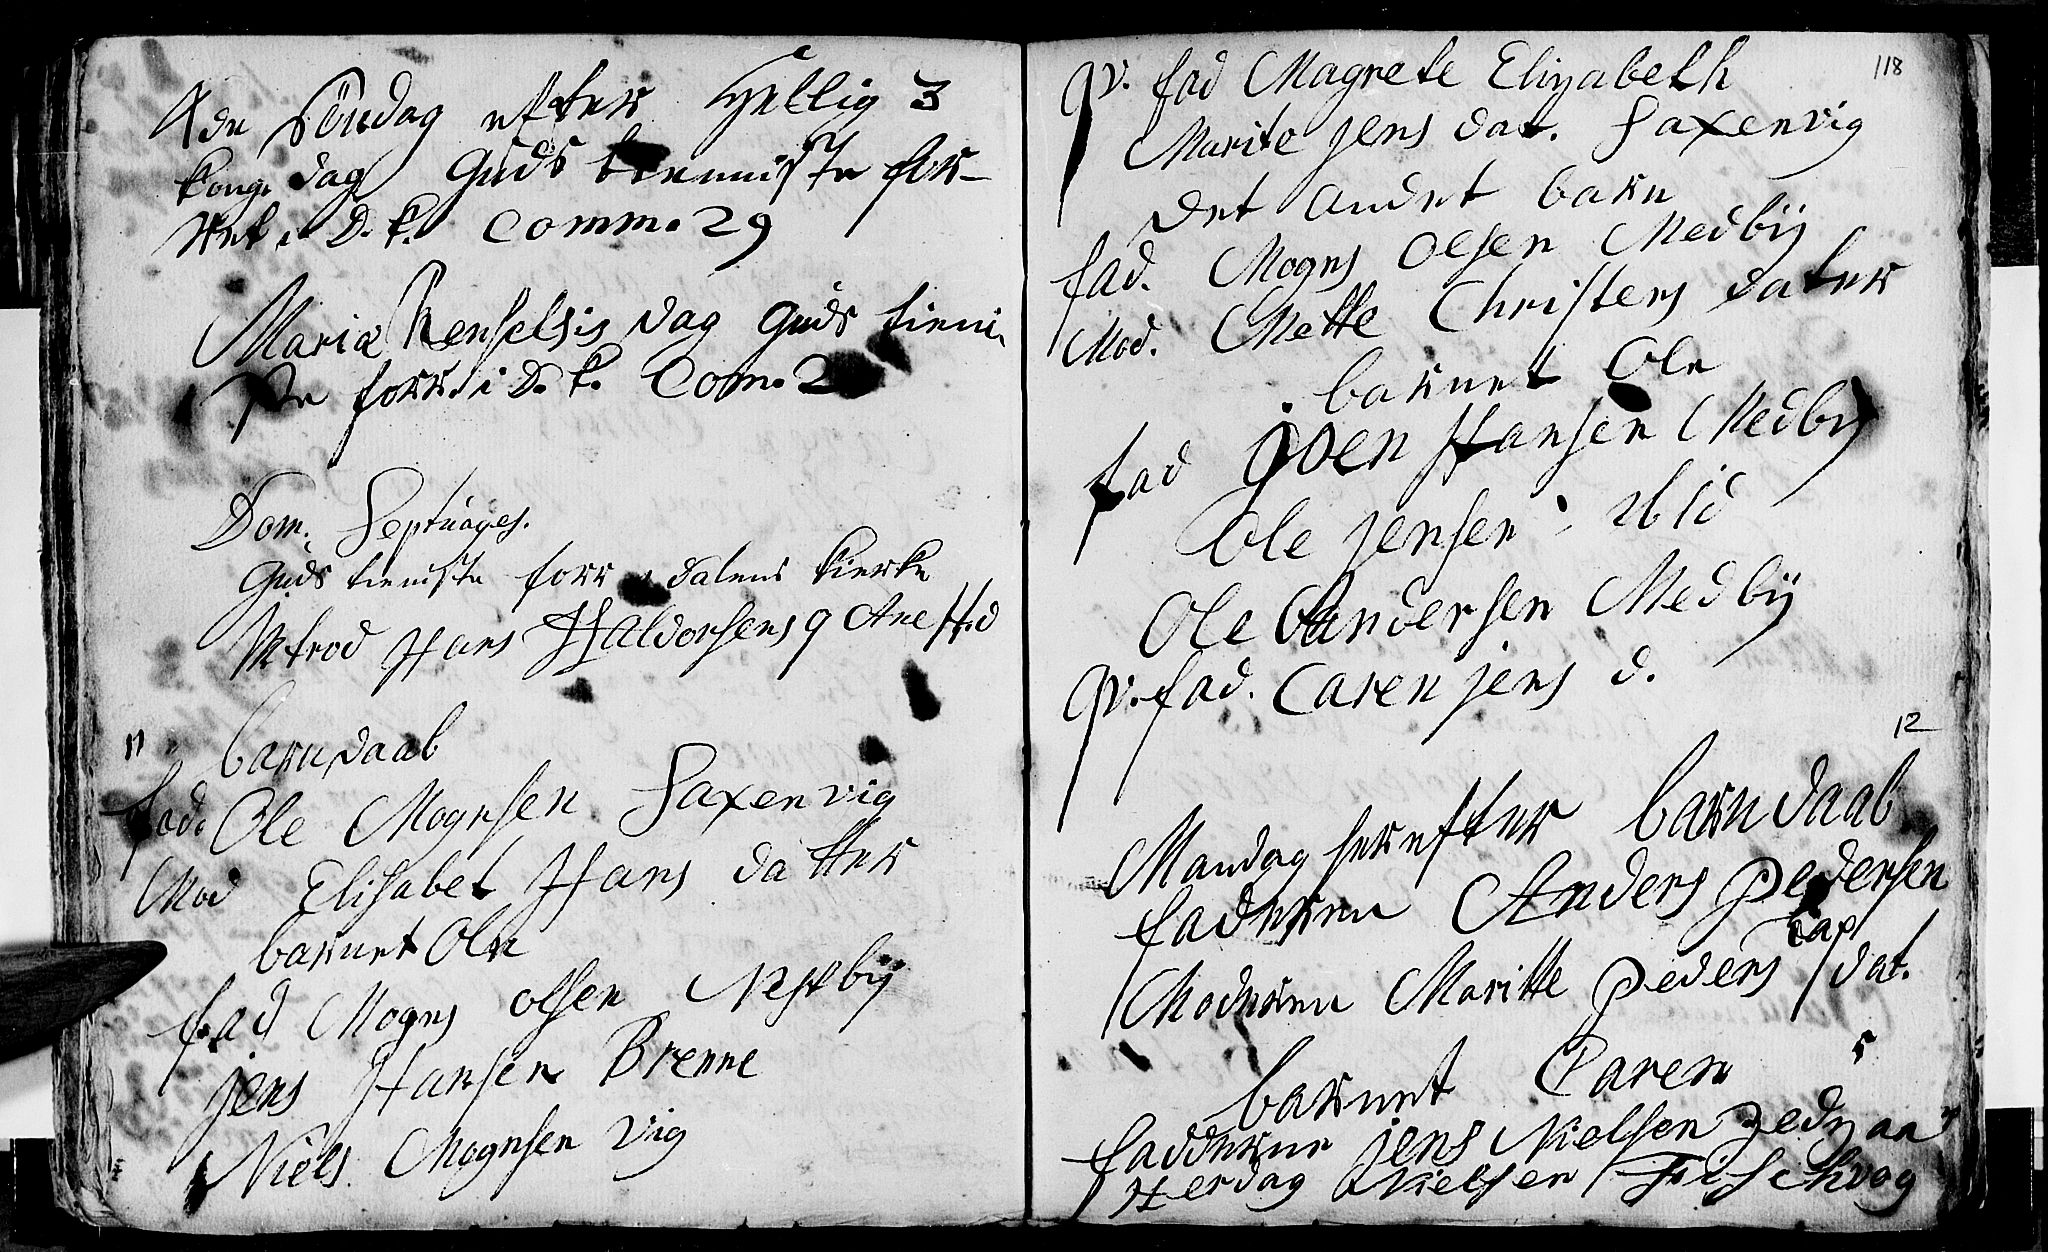 4de Söndag efter Hellig 3
kong. dag Guds tienniste for-
rtet i D.k. Comm. 29
Mariæ Renselsis dag Guds tieni-
ste forr. i D.k. Com. 2
Dom. Septuages.
Guds tieniste forr i dalens kierke
Introd Hans Haldorsens q Ane H.d
11 barn daab
fad. Ole Mognsen Saxenvig
Mod Elisabet Hans datter
barnet Ole
fad Mogns olsen Nestbÿ
jens Hansen Brenne
Niels Mognsen Vig
118
qv. fad Magrete Elizabeth
Marite jens dat. Saxenvig
Det andet barn
fad. Mogns Olsen Medbÿ
Mod. Mette Christens dater
barnet Ole
fad Iven Hansen Medbÿ
Ole jensen ibid
Ole Andersen Medbÿ
qv. fad. Caren jens d.
12
Mandag herefter barn daab
faderen Anders Pedersen
Cap
Moderen Maritte Peders dat.
barnet Caren
fadderne jens Nielsen
Herdag Nielsen Fischvog